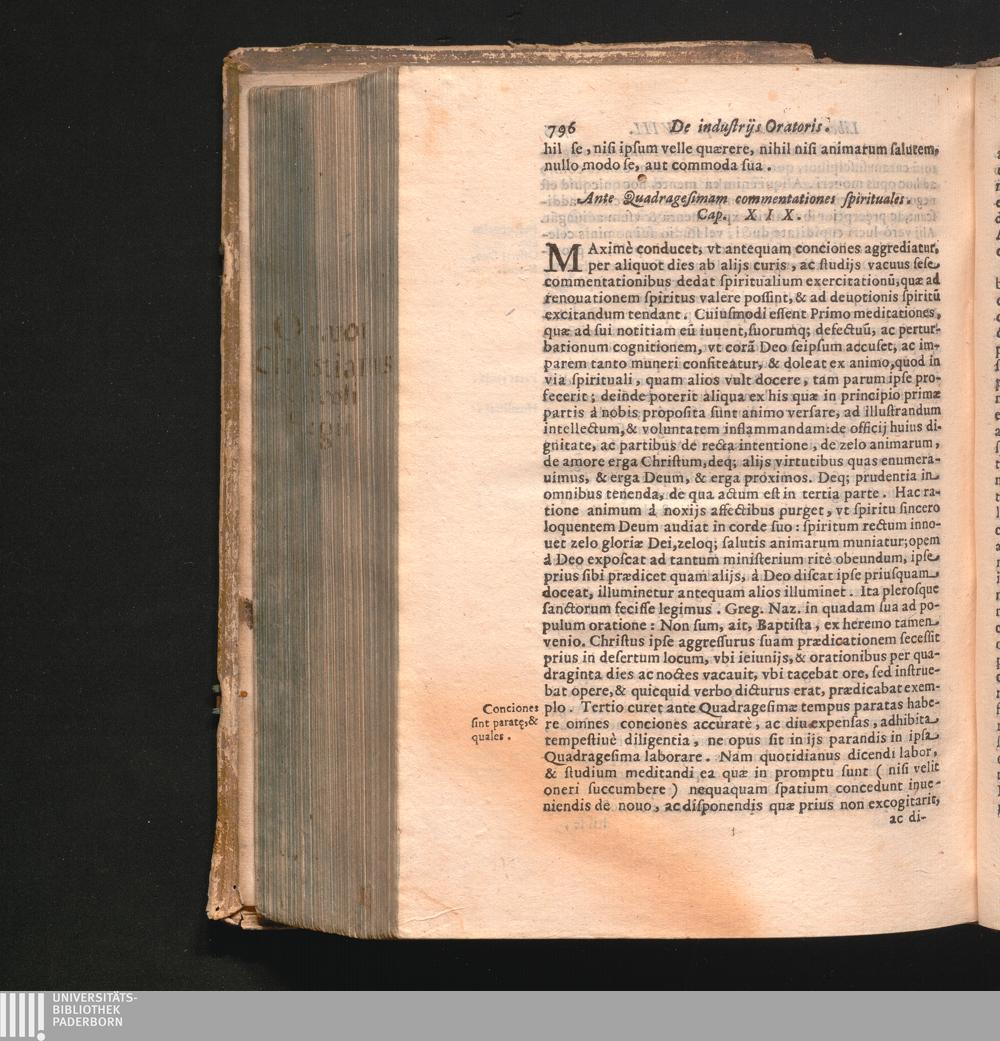 796 De induſtrijs Oratoris.
hil ſe, niſi ipſum velle quærere, nihil niſi animarum ſalutem,
nullo modo ſe, aut commoda ſua.
Ante Quadrageſimam commentationes ſpirituales.
Cap. XIX.
MAximè conducet, vt antequam conciones aggrediatur,
per aliquot dies ab alijs curis, ac ſtudijs vacuus ſeſe
commentationibus dedat ſpiritualium exercitationũ, quæ ad
renouationem ſpiritus valere poſſint, & ad deuotionis ſpiritũ
excitandum tendant. Cuiuſmodi eſſent Primo meditationes,
quæ ad ſui notitiam eũ iuuent, ſuorumq; defectuũ, ac pertur-
bationum cognitionem, vt corã Deo ſeipſum accuſet, ac im-
parem tanto muneri confiteatur, & doleat ex animo, quod in
via ſpirituali, quam alios vult docere, tam parum ipſe pro-
fecerit; deinde poterit aliqua ex his quæ in principio primæ
partis à nobis propoſita ſunt animo verſare, ad illuſtrandum
intellectum, & voluntatem inflammandam: de officij huius di-
gnitate, ac partibus de recta intentione, de zelo animarum,
de amore erga Chriſtum, deq; alijs virtutibus quas enumera-
uimus, & erga Deum, & erga proximos. Deq; prudentia in
omnibus tenenda, de qua actum eſt in tertia parte. Hac ra-
tione animum à noxijs affectibus purget, vt ſpiritu ſincero
loquentem Deum audiat in corde ſuo: ſpiritum rectum inno-
uet zelo gloriæ Dei, zeloq; ſalutis animarum muniatur; opem
à Deo expoſcat ad tantum miniſterium ritè obeundum, ipſe
prius ſibi prædicet quam alijs, à Deo diſcat ipſe priuſquam
doceat, illuminetur antequam alios illuminet. Ita plerosque
ſanctorum feciſſe legimus. Greg. Naz. in quadam ſua ad po-
pulum oratione: Non ſum, ait, Baptiſta, ex heremo tamen
venio. Chriſtus ipſe aggreſſurus ſuam prædicationem ſeceſſit
prius in deſertum locum, vbi ieiunijs, & orationibus per qua-
draginta dies ac noctes vacauit, vbi tacebat ore, ſed inſtrue-
bat opere, & quicquid verbo dicturus erat, prædicabat exem-
plo. Tertio curet ante Quadrageſimæ tempus paratas habe-
re omnes conciones accuratè, ac diu expenſas, adhibita
tempeſtiuè diligentia, ne opus ſit in ijs parandis in ipſa
Quadrageſima laborare. Nam quotidianus dicendi labor,
& ſtudium meditandi ea quæ in promptu ſunt (niſi velit
oneri ſuccumbere) nequaquam ſpatium concedunt inue-
niendis de nouo, ac diſponendis quæ prius non excogitarit,
ac di-
Conciones
ſint paratę, &
quales.
UNIVERSITÄTS-
BIBLIOTHEK
PADERBORN